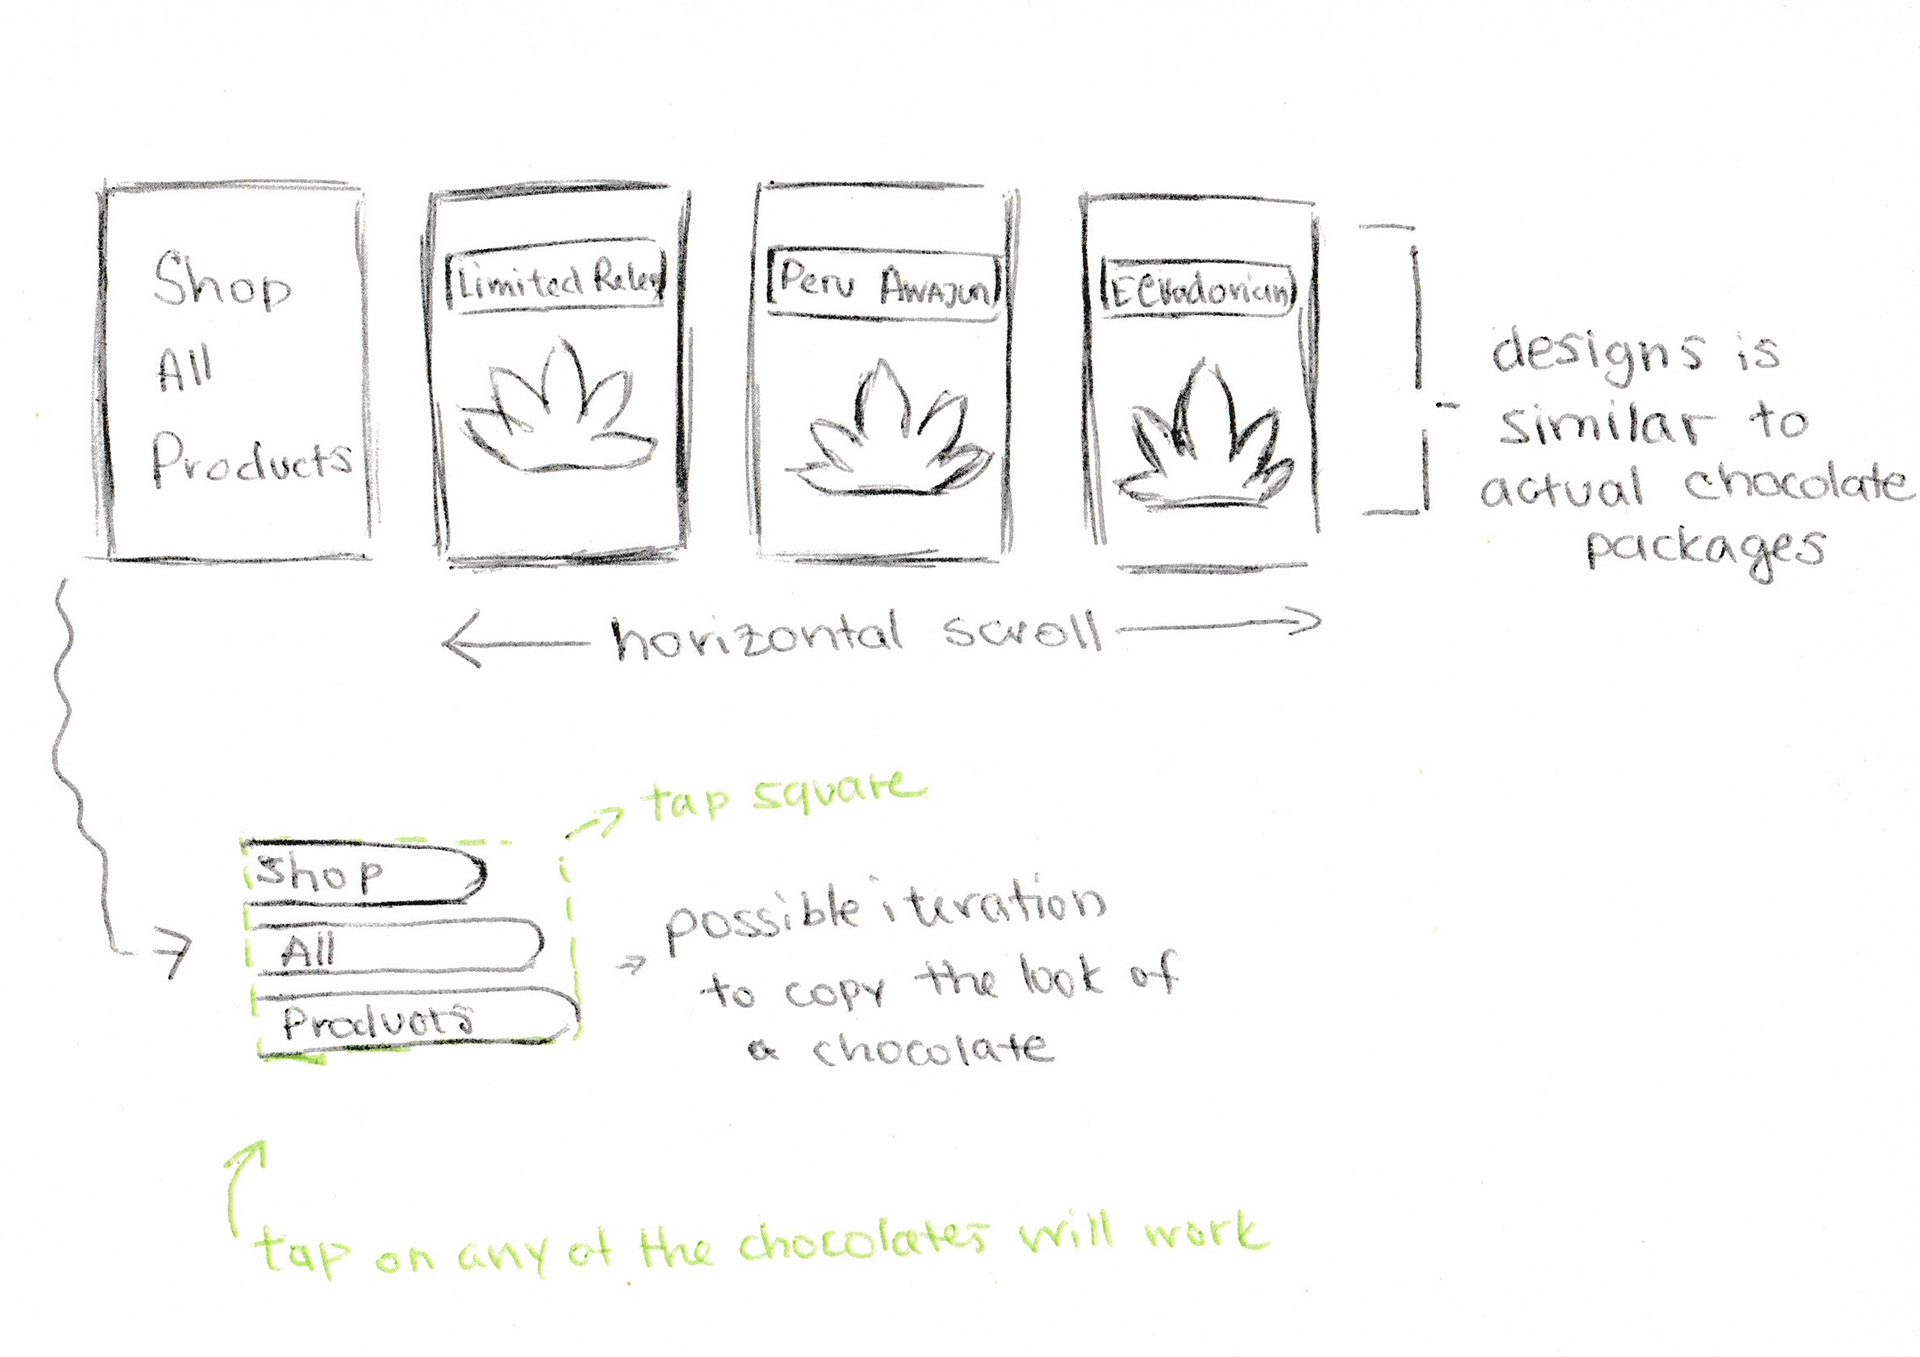 Shop
All
Products
Limited Relea
Peru AWAJUN
ECuadorian
designs is
similar to
actual chocolate
packages
horizontal scroll
tap square
Shop
All
Products
possible iteration
to copy the look of
a chocolate
tap on any of the chocolates will work